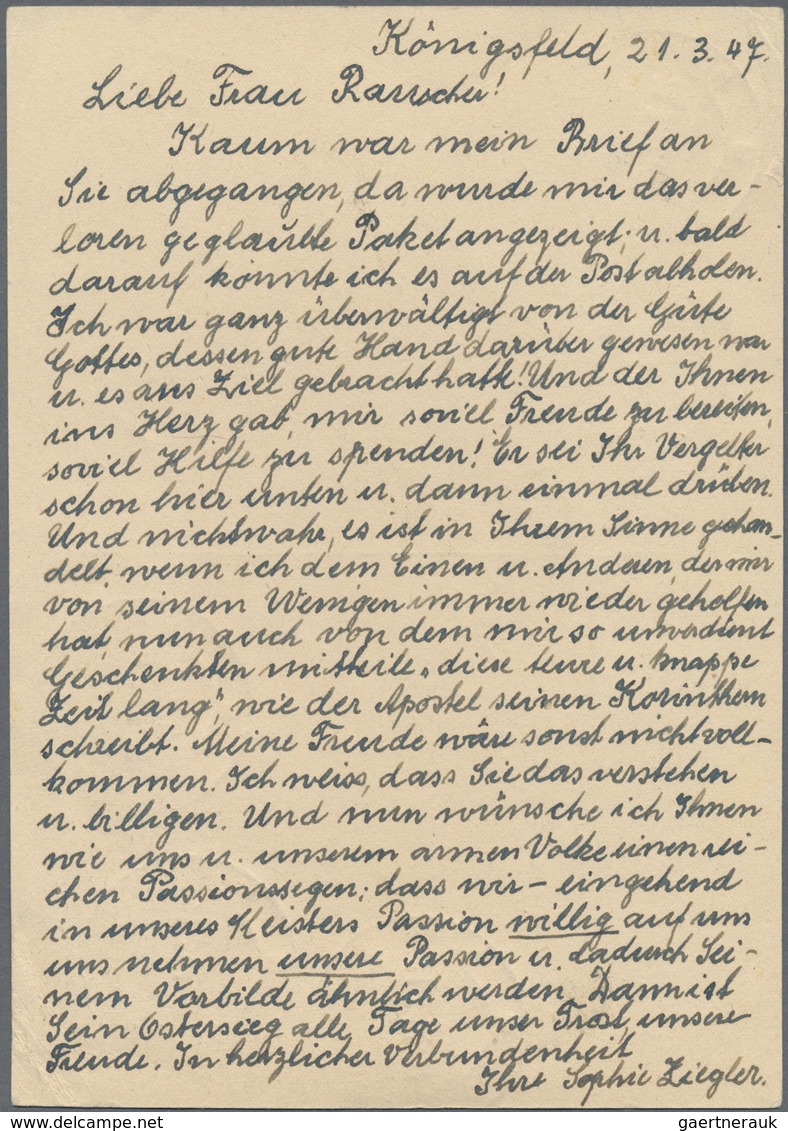 Königsfeld, 21.3.47.
Liebe Frau Rauscher!
Kaum war mein Brief an
Sie abgegangen, da wurde mir das ver-
loren geglaubte Paket angezeigt; u. bald
darauf konnte ich es auf der Post abholen.
Ich war ganz überwältigt von der Güte
Gottes, dessen gute Hand darüber gewesen war
u. es ans Ziel gebracht hatte! Und der Ihnen
ins Herz gab, mir soviel Freude zu bereiten,
soviel Hilfe zu spenden! Er sei Ihr Vergelter
schon hier unten u. dann einmal drüben.
Und nichtwahr, es ist in Ihrem Sinne gehan-
delt, wenn ich dem Einen u. Anderen, der mir
von seinem Wenigen immer wieder geholfen
hat, nun auch von dem mir so unverdient
Geschenkten mitteile „diese teure u. knappe
Zeit lang", wie der Apostel seinen Korinthern
schreibt. Meine Freude wäre sonst nicht voll-
kommen. Ich weiss, dass Sie das verstehen
u. billigen. Und nun wünsche ich Ihnen
wie uns u. unserem armen Volke einen rei-
chen Passionssegen; dass wir – eingehend
in unseres Meisters Passion willig auf uns
uns nehmen unsere Passion u. dadurch Sei-
nem Vorbilde ähnlich werden. Dann ist
Sein Ostersieg alle Tage unser Trost, unsere
Freude. In herzlicher Verbundenheit
Ihre Sophie Ziegler.
gaertnerauk